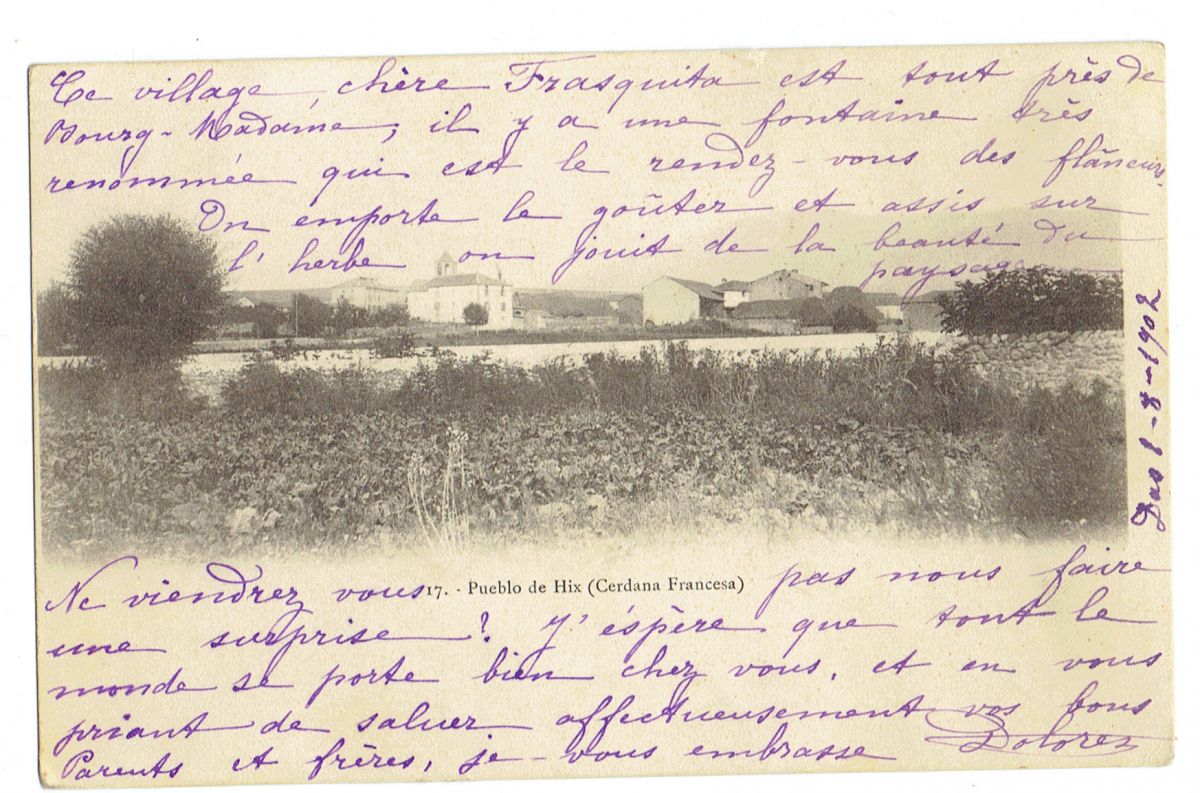 Ce village, chère Frasquita est tout près de
Bourg-Madame, il y a une fontaine très
renommée qui est le rendez-vous des flâneurs.
On emporte le goûter et assis sur
l'herbe on jouit de la beauté du
paysage
8-8-1902
17. - Pueblo de Hix (Cerdana Francesa)
Ne viendrez vous pas nous faire
une surprise? J'éspère que tout le
monde se porte bien chez vous, et en vous
priant de saluer affectueusement vos bons
Parents et frères, je vous embrasse Dolores